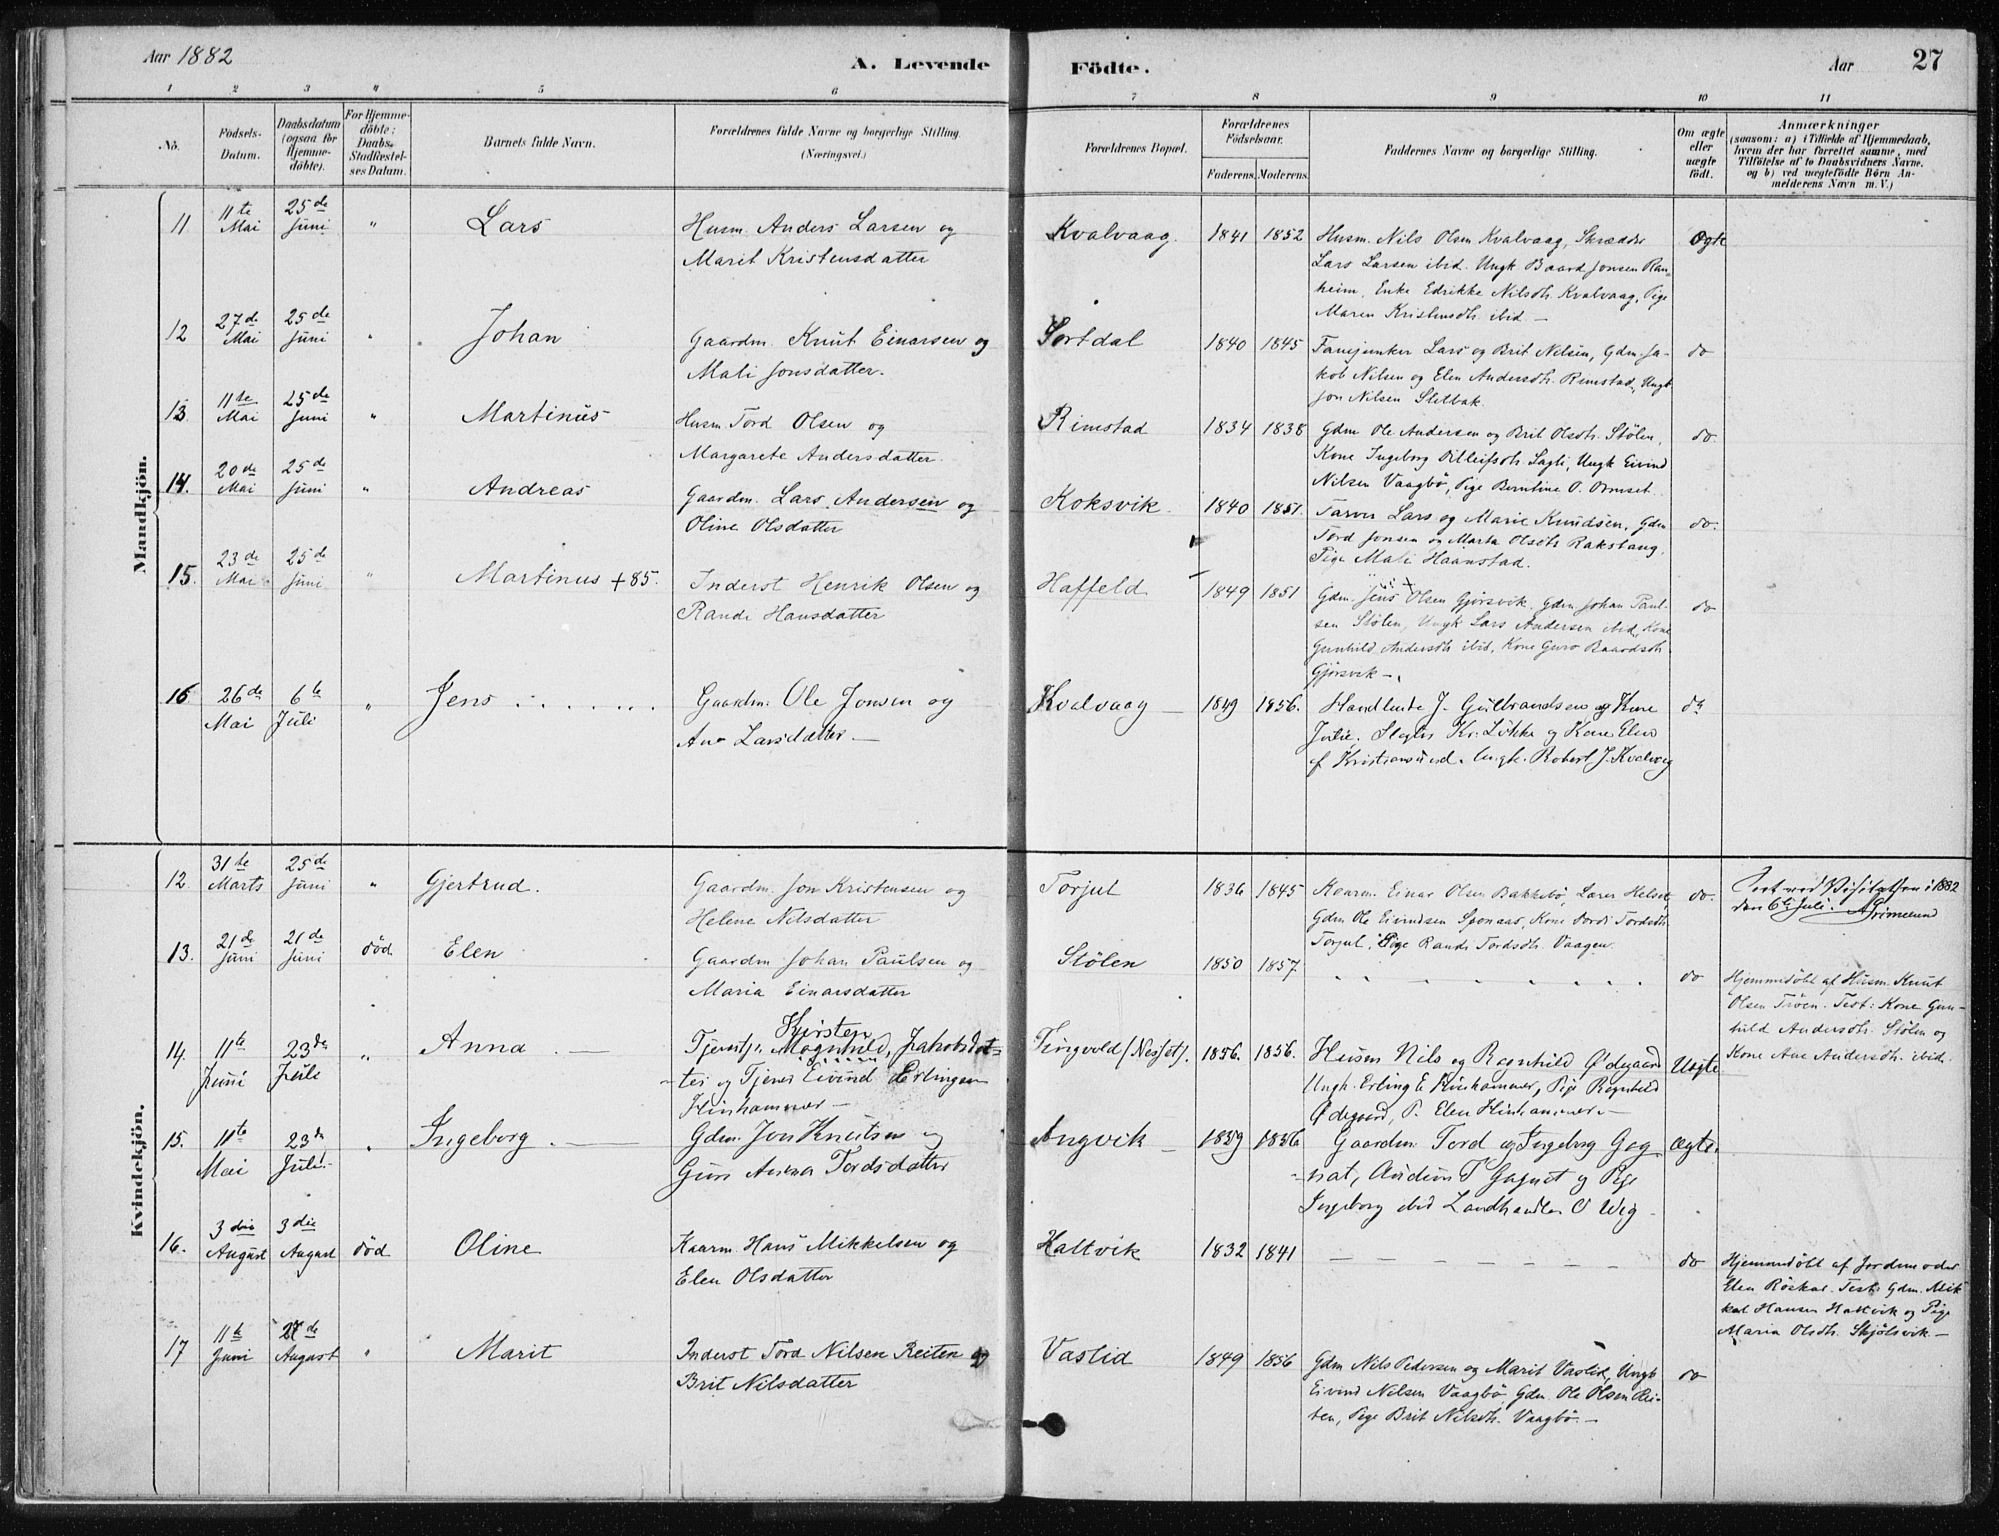 Aar 1882
A. Levende
Födte.
Aar
27
1 2 3 4 5 6 7 8 9 10 11
No.
Födsels-
Datum.
Daabsdatum
(ogsaa for
Hjemme-
döbte).
For Hjemme-
döbte:
Daabs-
Stadfæstel-
ses Datum.
Barnets fulde Navn.
Forældrenes fulde Navne og borgerlige Stilling.
(Næringsvei.)
Forældrenes Bopæl.
Forældrenes
Födselsaar.
Faderens. Moderens.
Faddernes Navne og borgerlige Stilling.
Om ægte
eller
uægte
födt.
Anmærkninger
(saasom: a) i Tilfælde af Hjemmedaab,
hvem der har forrettet samme, med
Tilföielse af to Daabsvidners Navne.
og b) ved uægtefödte Börn An-
melderens Navn m. V.)
Mandkjön.
11 11te Mai 25de Juni " Lars
Husm. Anders Larsen og
Marit Kristensdatter
Kvalvaag. 1841 1852
Husm. Nils Olsen Kvalvaag, Skrædder
Lars Larsen ibid. Ungk Baard Jonsen Ran-
heim, Enke Edrikke Nilsdtr. Kvalvaag, Pige
Maren Kristensdtr. ibid —
Ægte
12 27de Mai 25de Juni " Johan
Gaardm. Knut Einarsen og
Mali Jonsdatter.
Sortdal 1840 1845
Fanejunker Lars og Brit Nilsen, Gdm. Ja-
kob Nilsen og Elen Andersdtr. Rimstad, Ungk
Jon Nilsen Sletbak.
do
13 11te Mai 25de Juni " Martinus
Husm. Tord Olsen og
Margarete Andersdatter.
Rimstad 1834 1838
Gdm Ole Andersen og Brit Olsdtr. Stölen,
Kone Ingeborg Pilleifsdtr. Sagli, Ungk Eivind
Nilsen Vaagbø, Pige Berntine O. Ormset.
do
14. 20de Mai 25de Juni " Andreas
Gaardm. Lars Andersen og
Oline Olsdatter
Koksvik. 1840 1851.
Farver Lars og Marie Knudsen, Gdm
Tord Jonsen og Marta Olsdtr Rakstang.
Pige Mali Haanstad.
do.
15. 23de Mai 25de Juni " Martinus +85.
Inderst Henrik Olsen og
Randi Hansdatter
Haffeld 1849 1851
Gdm. Jens Olsen Gjørsvik. Gdm Johan Paul-
sen Stölen, Ungk Lars Andersen ibid, Kone
Gunhild Andersdtr ibid, Kone Guro Baardsdtr.
Gjørsvik —
do
16 26de Mai 6te Juli " Jens
Gaardm: Ole Jonsen og
Ane Larsdatter —
Kvalvaag — 1849 1856.
Handlende J. Gulbrandsen og Kone
Julie. Slagter Kr: Løkke og Kone Elen
af Kristiansund. Ungk. Robert J. Kvalvag
do
Kvindekjön.
12 31te Marts 25de Juni " Gjertrud.
Gaardm. Jon Kristensen og
Helene Nilsdatter
Torjul 1836 1845
Kaarm. Einar Olsen Bakkebø, Lærer Helset,
Gdm Ole Eivindsen Sponaas, Kone Dordi Tordsdtr.
Torjul, Pige Randi Tordsdtr. Vaagen.
do.
Seet ved Visitatsen i 1882
den 6te Juli. Grimelund
13. 21de Juni 21de Juni død Elen
Gaardm Johan Paulsen og
Maria Einarsdatter
Stölen 1850 1857.
do
Hjemmedøbt af Husm. Knut
Olsen Trøen. Test: Kone Gun-
hild Andersdtr. Stölen og
Kone Ane Andersdtr. ibid.
14. 11te Juni 23de Juli " Anna. —
Kirsten
Tjenestp. Magnhild, Jakobsdat-
ter og Tjener Eivind Erlingsen
Hinhammer —
Tingvold (Nesset). 1856. 1856.
Husm Nils og Ragnhild Ødegaard
Ungk. Erling E Hinhammer, Pige Ragnhild
Ødegaard, P. Elen Hinhammer —
Uægte
15. 11te Mai 23de Juli " Ingeborg. —
Gdm. Jon Knutsen og
Guro Tordsdatter
Angvik — 1859 1856
Gaardm: Tord og Ingeborg Gag-
nat, Audun T Gagnat og Pige
Ingeborg ibid Landhandler O Weg
Ægte.
16. 3die August 3die August død Oline
Kaarm. Hans Mikkelsen og
Elen Olsdatter
Haltvik 1832 1841
— — — — — — —
do
Hjemmedøbt af Jordemoder
Elen Röskar. Test: Gdm. Mik-
kel Hansen Haltvik og Pige
Maria Olsdtr. Skjølsvik —
17 11te Juni 27de August " Marit
Inderst Tord Nilsen Reiten og
Brit Nilsdatter
Vaslid 1849 1856
Gdm Nils Pedersen og Marit Vaslid, Ungk
Eivind Nilsen Vaagbø, Gdm Ole Olsen Rei-
ten, Pige Brit Nilsdtr. Vaagbø. —
do